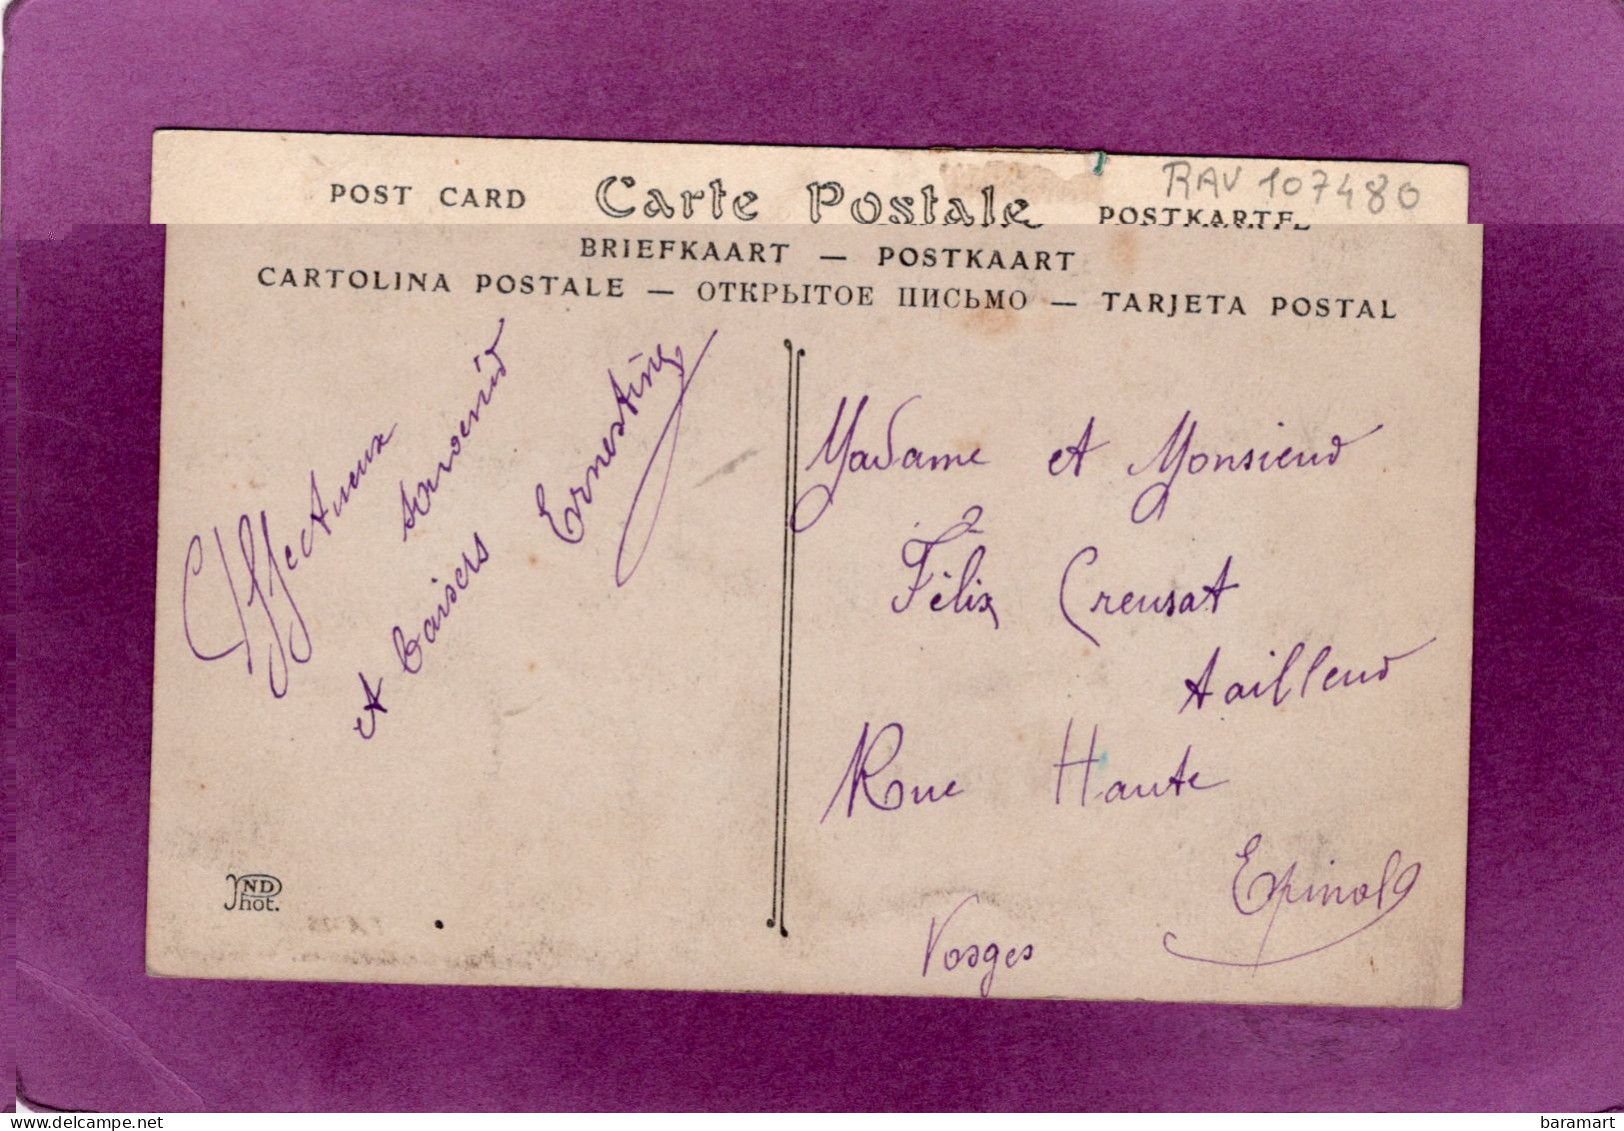 RAV 107480
POST CARD Carte Postale POSTKARTE
BRIEFKAART — POSTKAART
CARTOLINA POSTALE — ОТКРЫТОЕ ПИСЬМО — TARJETA POSTAL
Affectueux
souvenir
et baisers Ernestine
Madame et Monsieur
Félix Creusat
tailleur
Rue Haute
Epinal
Vosges
ND
Phot.
baramart on delcampe.net